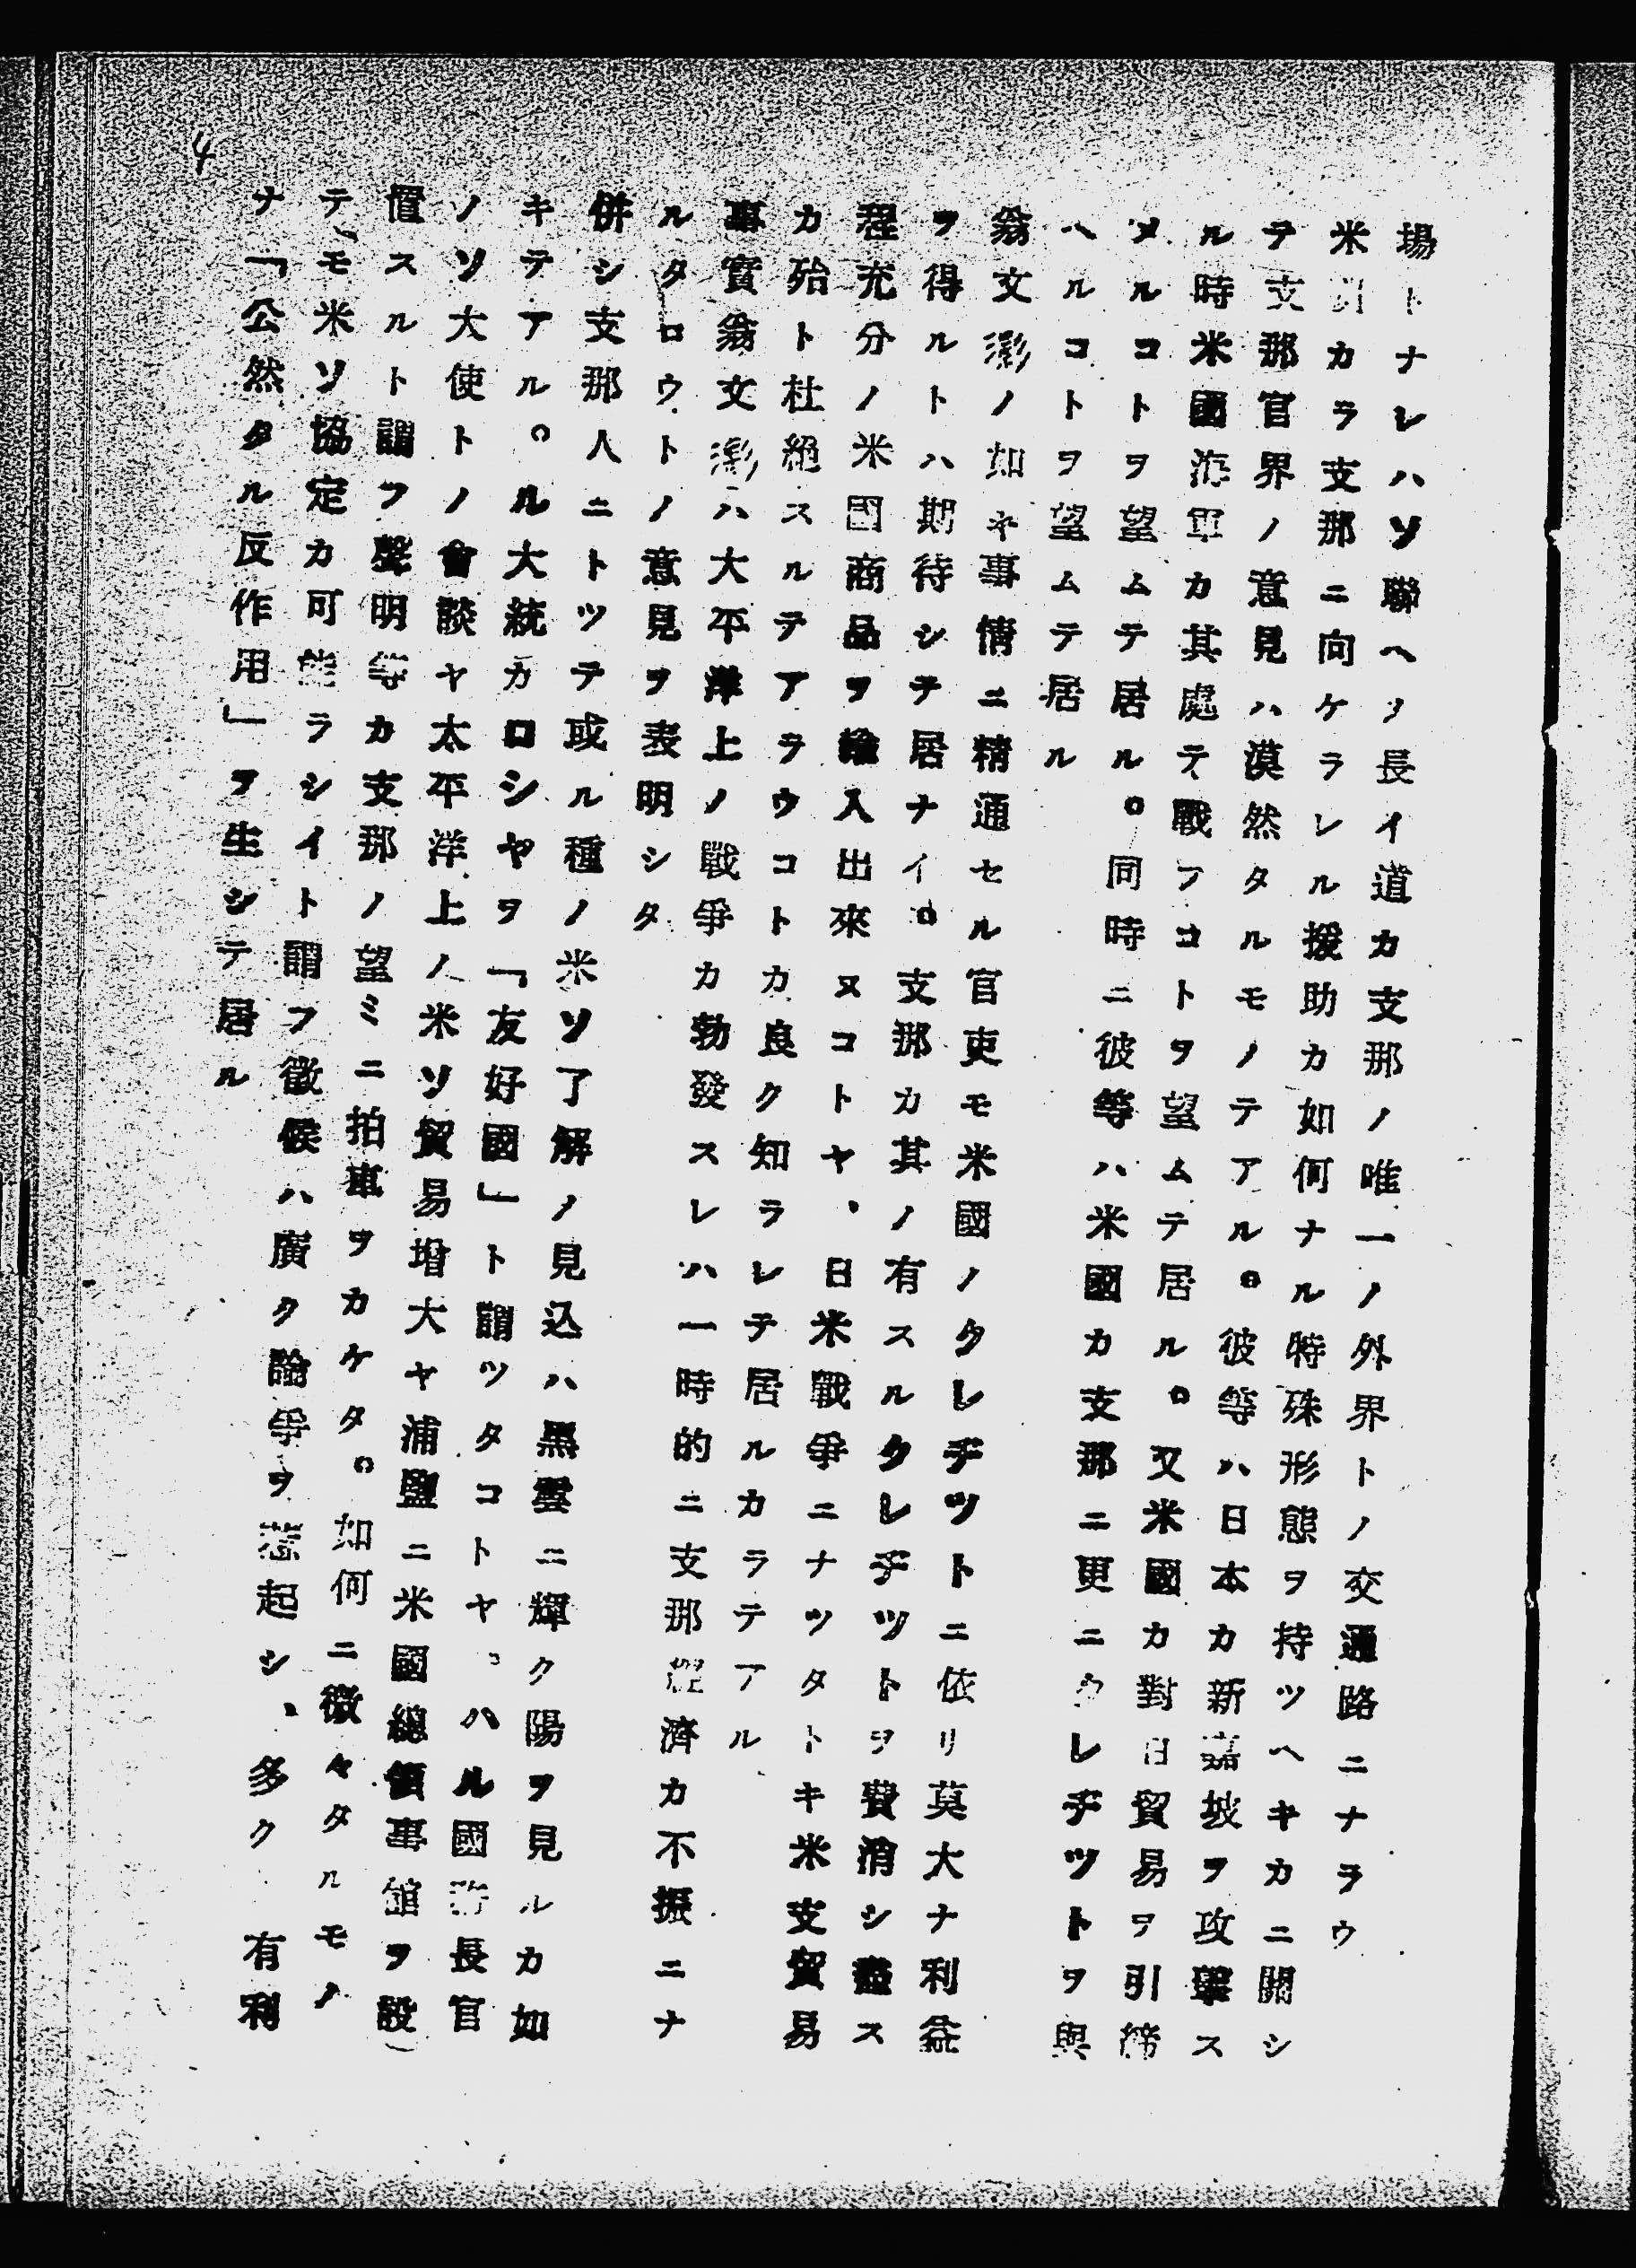 4
場トナレハソ聯ヘノ長イ道カ支那ノ唯一ノ外界トノ交通路ニナラウ
米國カラ支那ニ向ケラレル援助カ如何ナル特殊形態ヲ持ツヘキカニ關シ
テ支那官界ノ意見ハ漠然タルモノテアル。彼等ハ日本カ新嘉坡ヲ攻擊ス
ル時米國海軍カ其處テ戰フコトヲ望ムテ居ル。又米國カ對日貿易ヲ引締
メルコトヲ望ムテ居ル。同時ニ彼等ハ米國カ支那ニ更ニクレヂツトヲ與
ヘルコトヲ望ムテ居ル
翁文澎ノ如キ事情ニ精通セル官吏モ米國ノクレヂツトニ依リ莫大ナ利益
ヲ得ルトハ期待シテ居ナイ。支那カ其ノ有スルクレヂツトヲ費消シ盡ス
程充分ノ米國商品ヲ輸入出來ヌコトヤ、日米戰爭ニナツタトキ米支貿易
カ殆ト杜絕スルテアラウコトカ良ク知ラレテ居ルカラテアル
事實翁文澎ハ大平洋上ノ戰爭カ勃發スレハ一時的ニ支那經濟カ不振ニナ
ルタロウトノ意見ヲ表明シタ
併シ支那人ニトツテ或ル種ノ米ソ了解ノ見込ハ黑雲ニ輝ク陽ヲ見ルカ如
キテアル。ル大統カロシヤヲ「友好國」ト謂ツタコトヤ。ハル國務長官
ノソ大使トノ會談ヤ太平洋上ノ米ソ貿易增大ヤ浦鹽ニ米國總領事館ヲ設
置スルト謂フ聲明等カ支那ノ望ミニ拍車ヲカケタ。如何ニ微々タルモノ
テモ米ソ協定カ可能ラシイト謂フ徵候ハ廣ク論爭ヲ惹起シ、多ク 有利
ナ「公然タル反作用」ヲ生シテ居ル